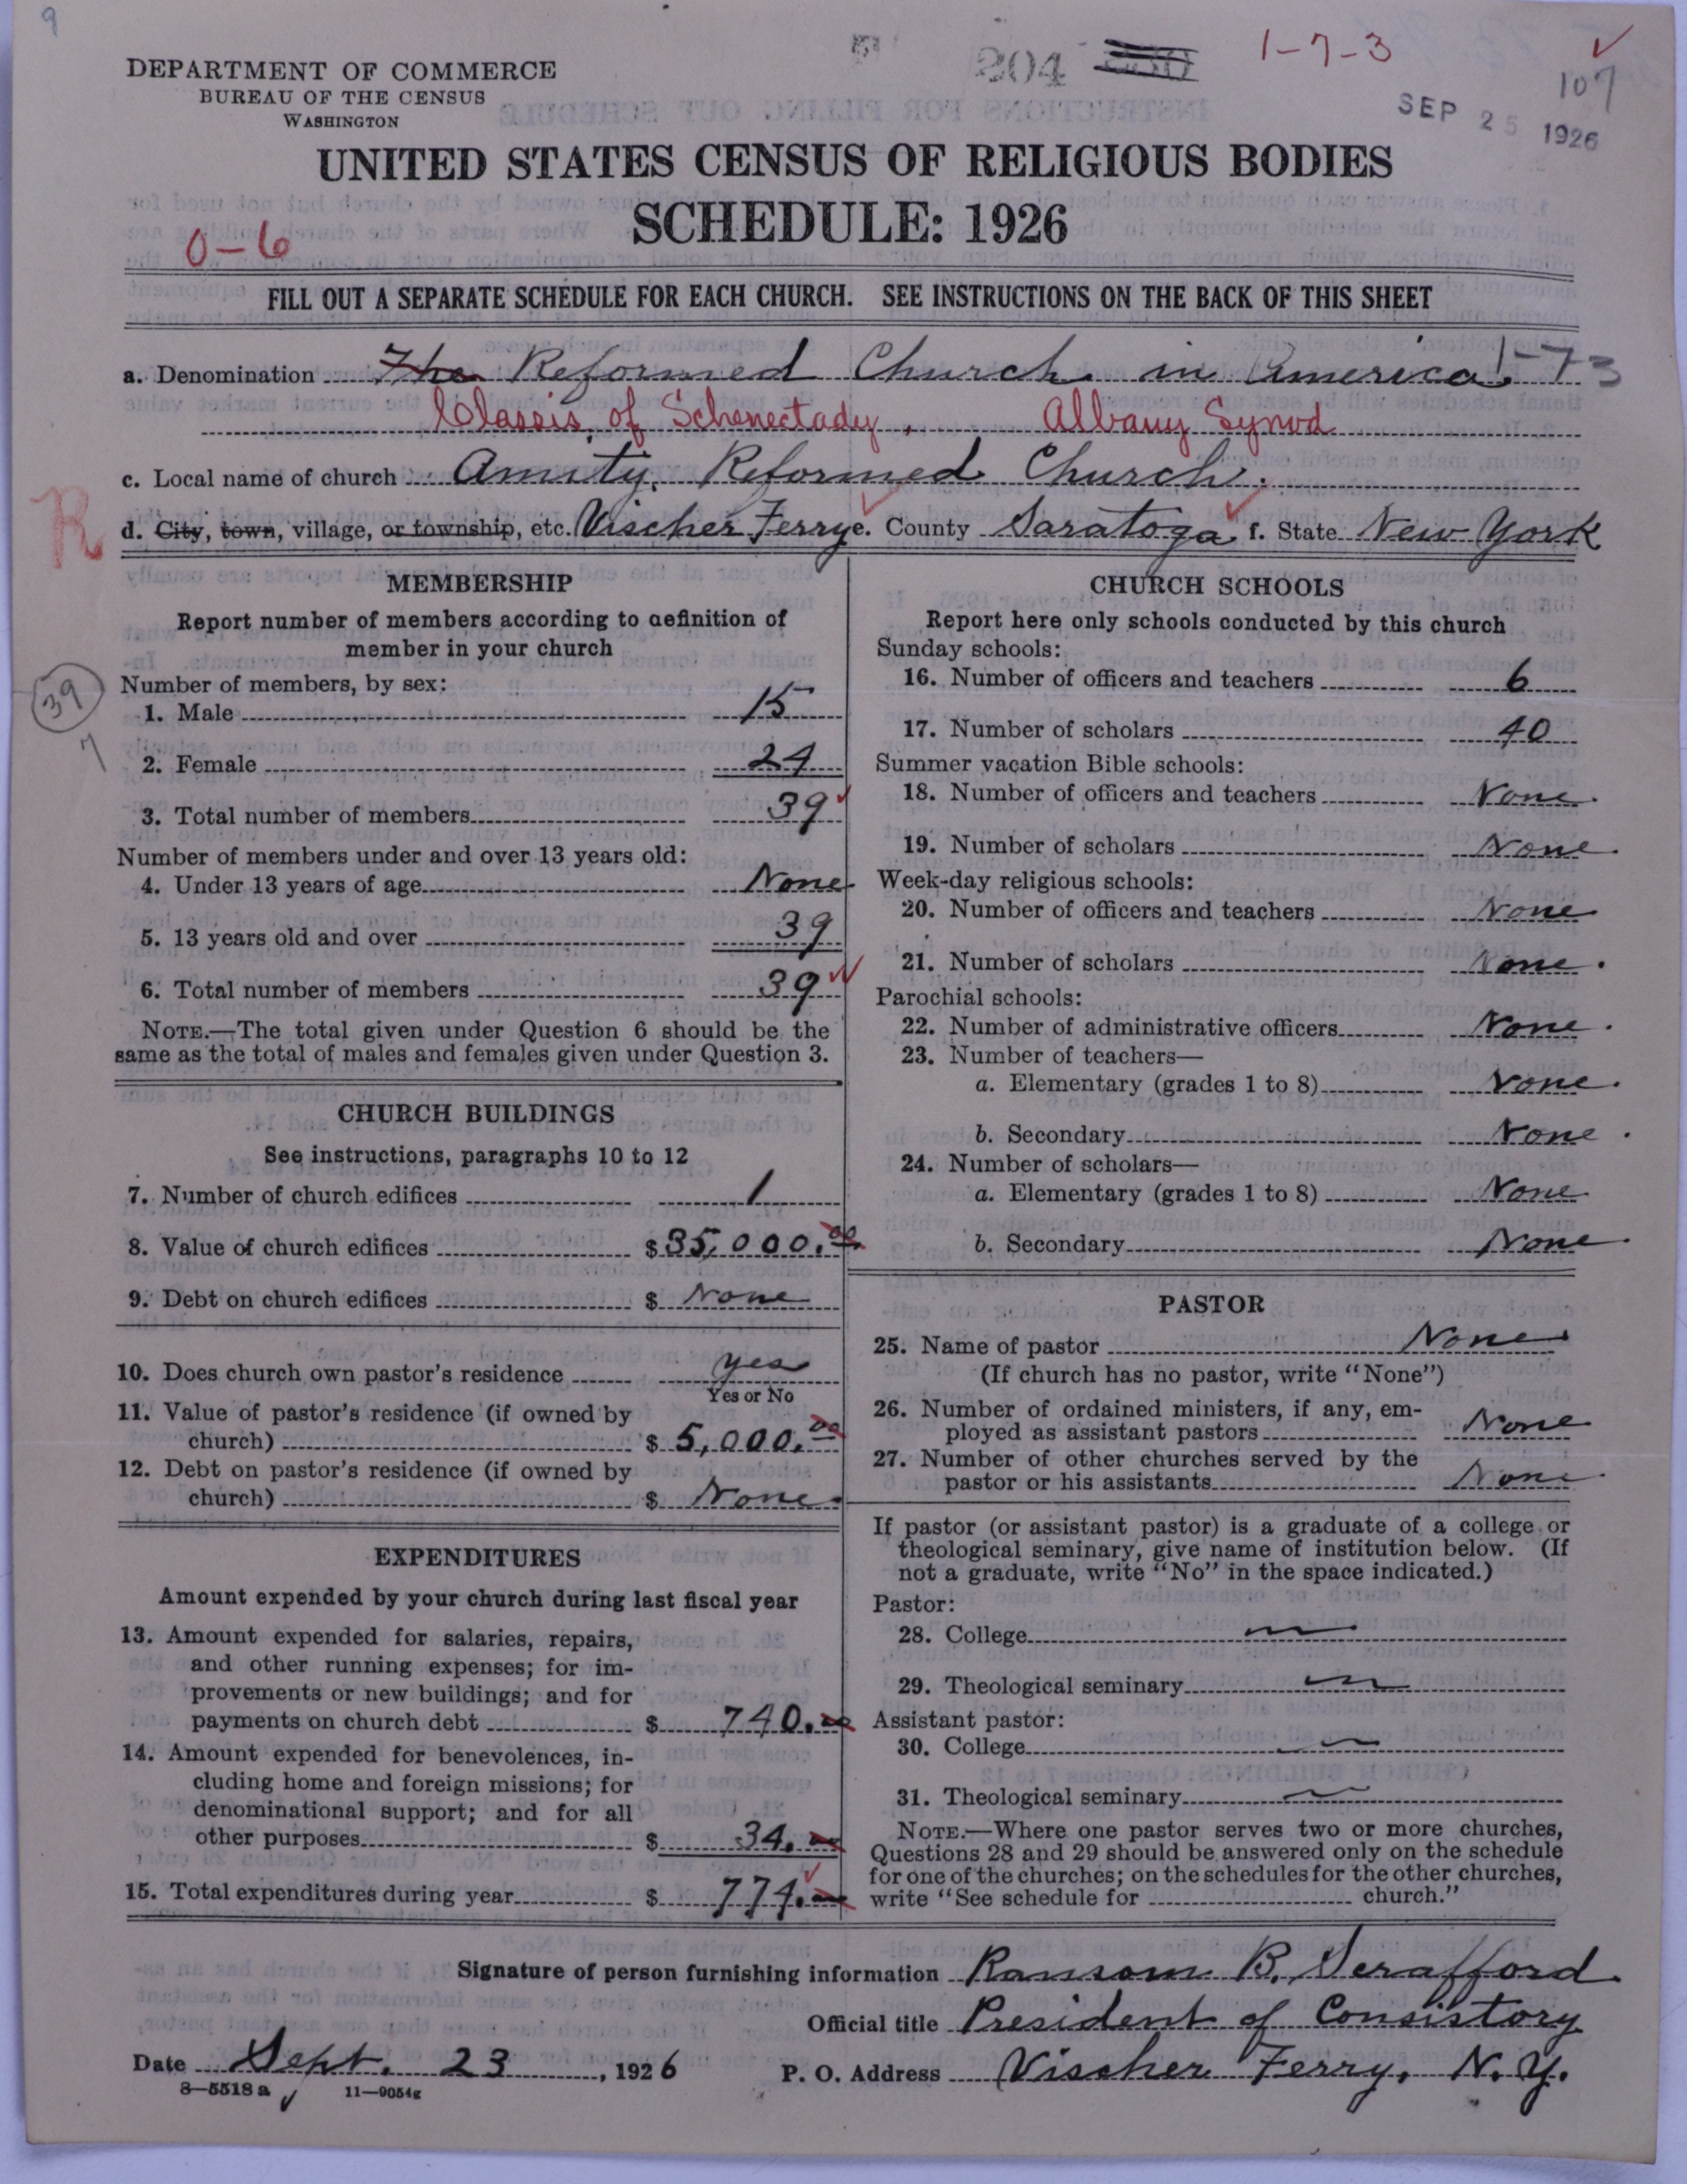 9
204
1-7-3
107
SEP 25 1926
DEPARTMENT OF COMMERCE
BUREAU OF THE CENSUS
WASHINGTON
UNITED STATES CENSUS OF RELIGIOUS BODIES
SCHEDULE: 1926
0-6
FILL OUT A SEPARATE SCHEDULE FOR EACH CHURCH. SEE INSTRUCTIONS ON THE BACK OF THIS SHEET
a. Denomination The Reformed Church in America 1-73
Classis of Schenectady, Albany Synod
c. Local name of church Amity Reformed Church.
R
d. City, town, village, or township, etc. Vischer Ferry e. County Saratoga f. State New York
MEMBERSHIP
Report number of members according to definition of
member in your church
Number of members, by sex:
39
7
1. Male 15
2. Female 24
3. Total number of members 39
Number of members under and over 13 years old:
4. Under 13 years of age None
5. 13 years old and over 39
6. Total number of members 39
NOTE.—The total given under Question 6 should be the
same as the total of males and females given under Question 3.
CHURCH BUILDINGS
See instructions, paragraphs 10 to 12
7. Number of church edifices 1
8. Value of church edifices $ 35,000.00
9. Debt on church edifices $ None
10. Does church own pastor's residence yes
Yes or No
11. Value of pastor's residence (if owned by
church) $ 5,000.00
12. Debt on pastor's residence (if owned by
church) $ None
EXPENDITURES
Amount expended by your church during last fiscal year
13. Amount expended for salaries, repairs,
and other running expenses; for im-
provements or new buildings; and for
payments on church debt $ 740.00
14. Amount expended for benevolences, in-
cluding home and foreign missions; for
denominational support; and for all
other purposes $ 34.00
15. Total expenditures during year $ 774.00
CHURCH SCHOOLS
Report here only schools conducted by this church
Sunday schools:
16. Number of officers and teachers 6
17. Number of scholars 40
Summer vacation Bible schools:
18. Number of officers and teachers None.
19. Number of scholars None.
Week-day religious schools:
20. Number of officers and teachers None
21. Number of scholars None.
Parochial schools:
22. Number of administrative officers None.
23. Number of teachers—
a. Elementary (grades 1 to 8) None.
b. Secondary None.
24. Number of scholars—
a. Elementary (grades 1 to 8) None
b. Secondary None
PASTOR
25. Name of pastor None
(If church has no pastor, write "None")
26. Number of ordained ministers, if any, em-
ployed as assistant pastors None
27. Number of other churches served by the
pastor or his assistants None
If pastor (or assistant pastor) is a graduate of a college or
theological seminary, give name of institution below. (If
not a graduate, write "No" in the space indicated.)
Pastor:
28. College
29. Theological seminary
Assistant pastor:
30. College
31. Theological seminary
NOTE.—Where one pastor serves two or more churches,
Questions 28 and 29 should be answered only on the schedule
for one of the churches; on the schedules for the other churches,
write "See schedule for church."
Signature of person furnishing information Ransom B. Serafford
Official title President of Consistory
Date Sept. 23, 1926 P. O. Address Vischer Ferry, N.Y.
8—5518 a 11—9054g